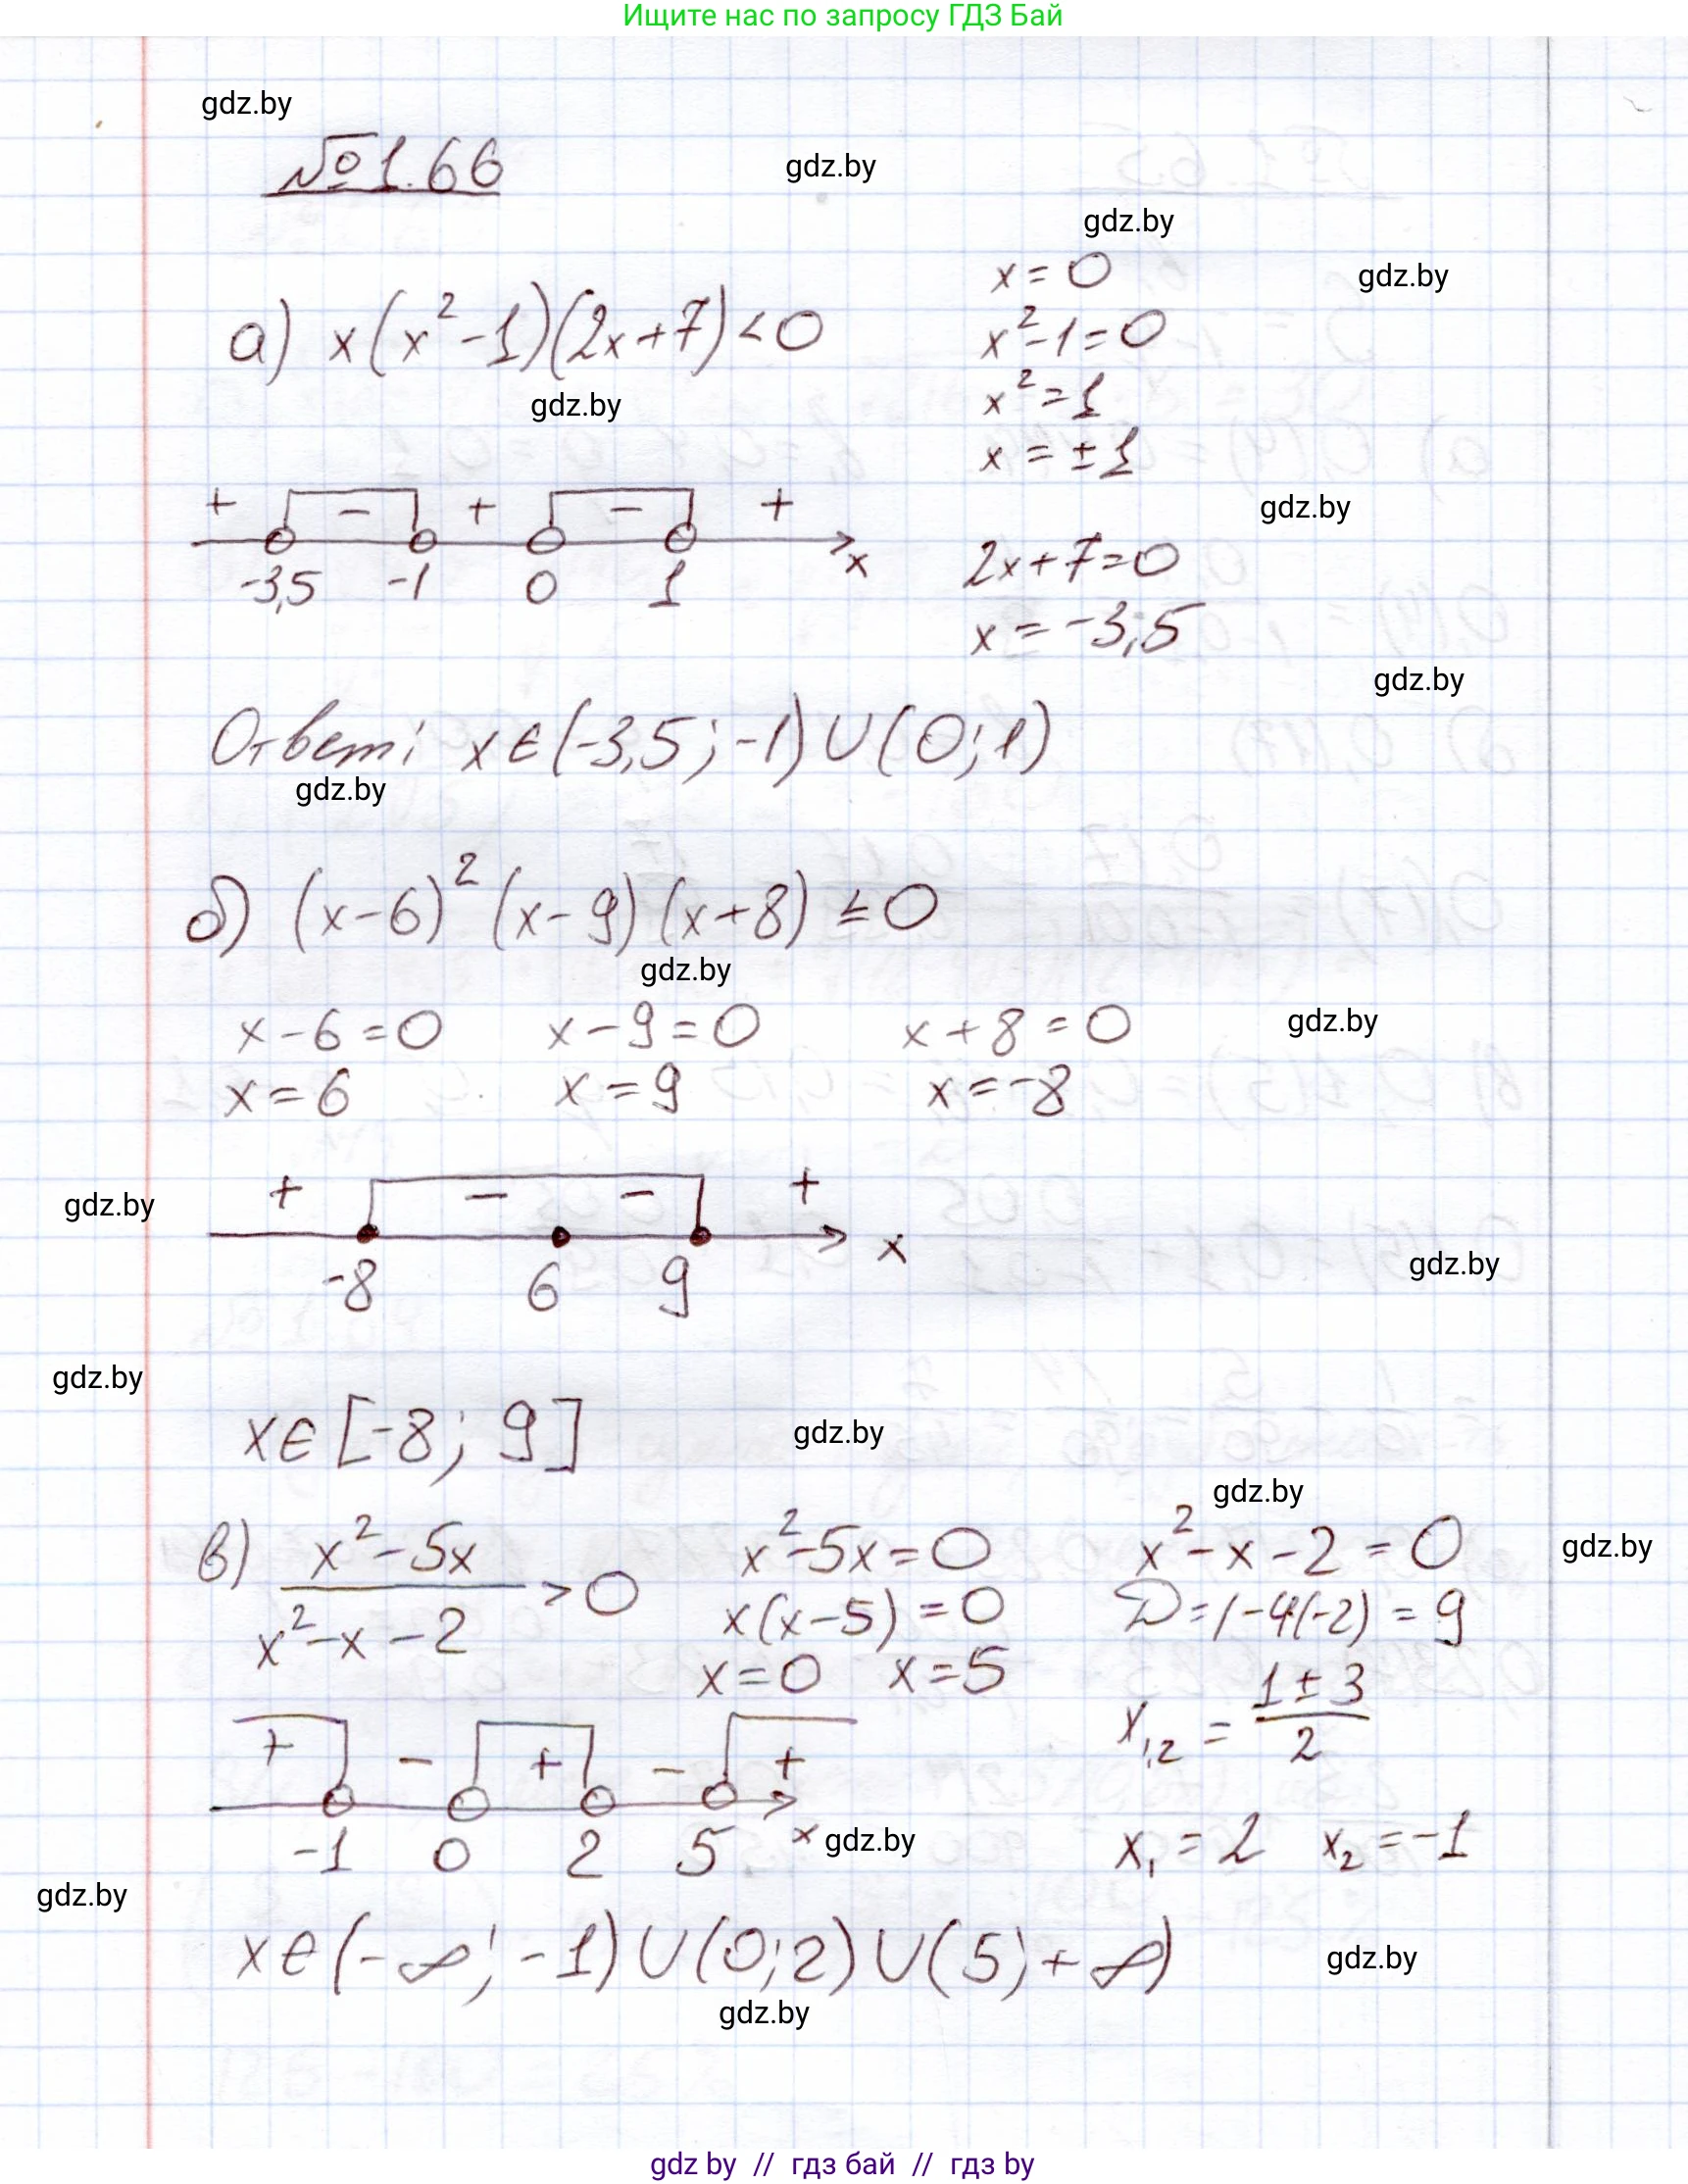 Ищите нас по запросу ГДЗ Бай
gdz.by
№1.66
gdz.by
gdz.by
x = 0
gdz.by
а) x(x²-1)(2x+7)<0
x²-1=0
gdz.by
x²=1
x = ±1
+ - + - +
gdz.by
-3,5 -1 0 1 x
2x+7=0
x = -3,5
gdz.by
Ответ: x∈(-3,5; -1)∪(0;1)
gdz.by
б) (x-6)²(x-9)(x+8) ≤0
gdz.by
x-6=0 x-9=0 x+8=0
gdz.by
x=6 x=9 x=-8
+ - - +
gdz.by
x
-8 6 9
gdz.by
gdz.by
x∈[-8; 9]
gdz.by
gdz.by
в) (x²-5x)/(x²-x-2) >0
x²-5x=0
x(x-5)=0
x=0 x=5
x²-x-2=0
gdz.by
D=1-4(-2)=9
x₁,₂ = (1±3)/2
x₁=2 x₂=-1
+ - + - +
-1 0 2 5 x
gdz.by
gdz.by
x∈(-∞; -1)∪(0;2)∪(5;+∞)
gdz.by
gdz.by
gdz by // гдз бай // гдз by